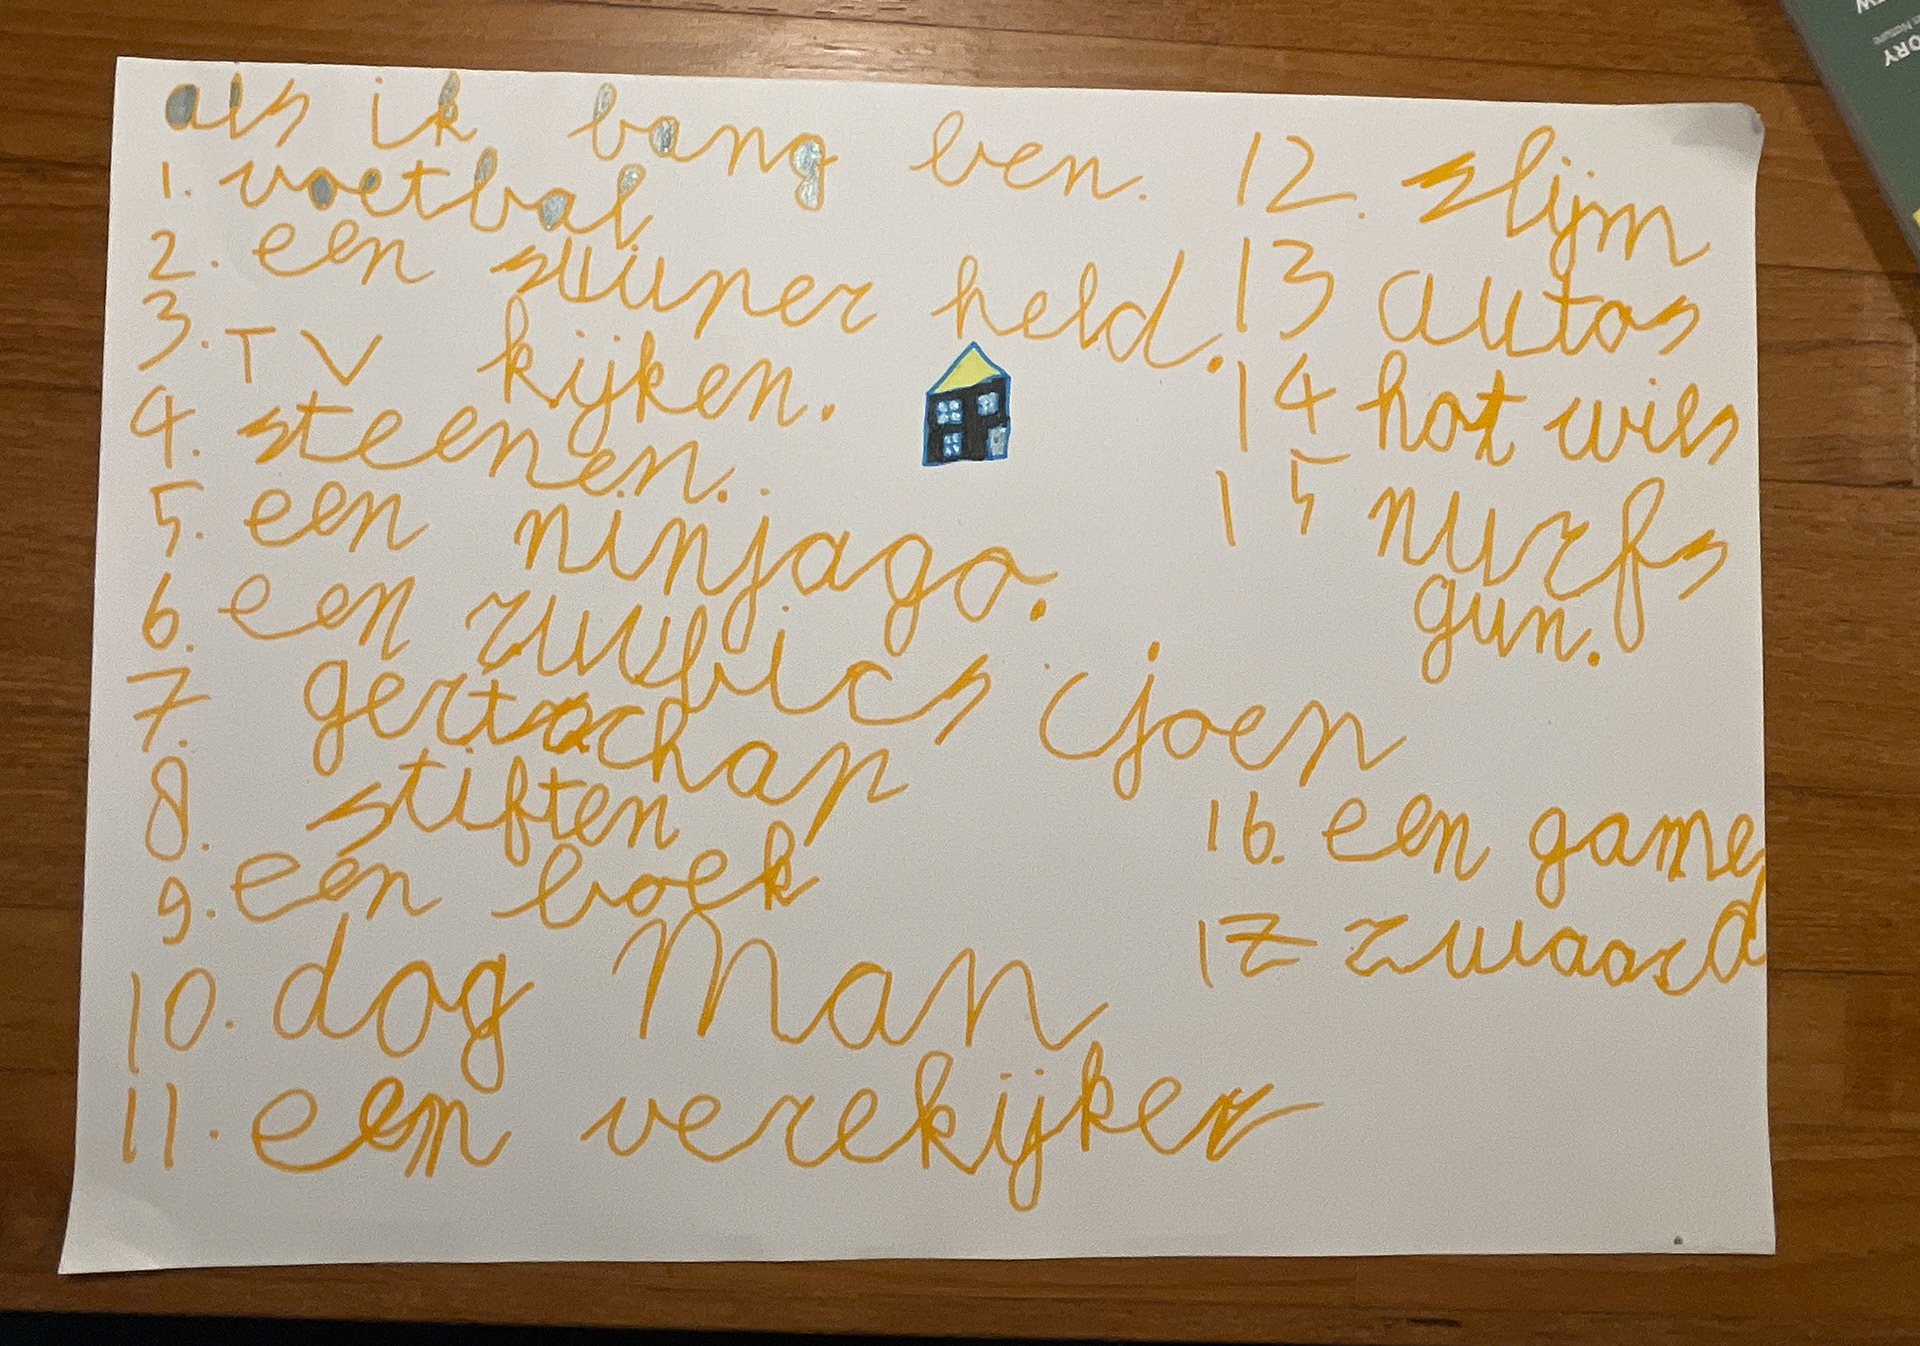 als ik bang ben.
1. voetbal
2. een suuper held.
3. TV kijken.
4. steenen.
5. een ninjago.
6. een ruubics cjoen
7. gertschap
8. stiften
9. een boek
10. dog Man
11. een verekijker
12. slijm
13 autos
14 hot wiels
15 nurfs
gun.
16. een game
17 zwaard
ORY